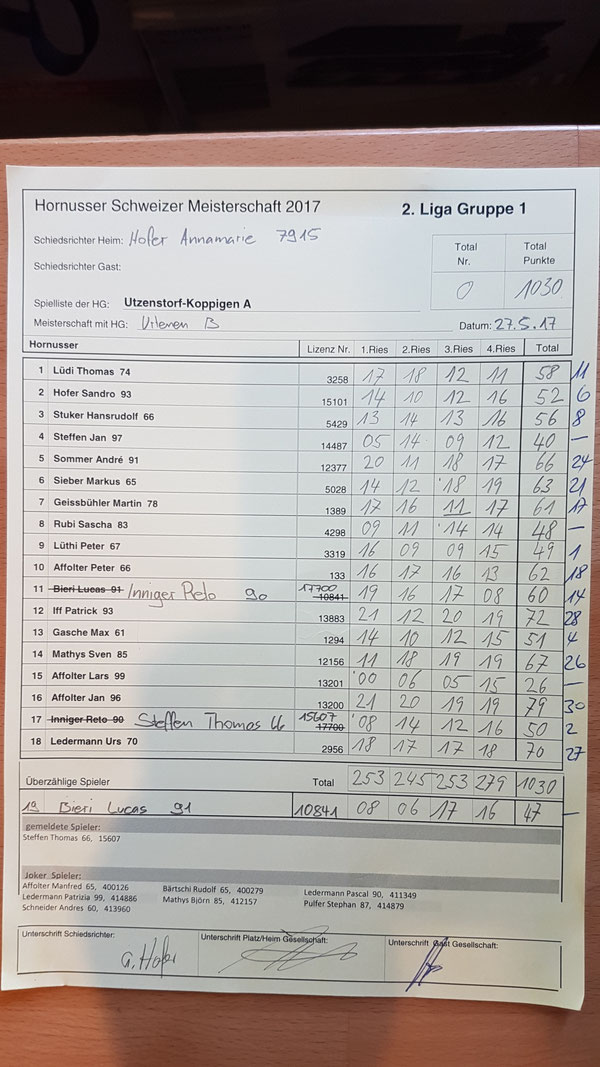 Hornusser Schweizer Meisterschaft 2017 2. Liga Gruppe 1
Schiedsrichter Heim: Hofer Annamarie 7915 Total Nr. Total Punkte
Schiedsrichter Gast: 0 1030
Spielliste der HG: Utzenstorf-Koppigen A
Meisterschaft mit HG: Urtenen B Datum: 27.5.17
Hornusser Lizenz Nr. 1.Ries 2.Ries 3.Ries 4.Ries Total
1 Lüdi Thomas 74 3258 17 18 12 11 58 11
2 Hofer Sandro 93 15101 14 10 12 16 52 6
3 Stuker Hansrudolf 66 5429 13 14 13 16 56 8
4 Steffen Jan 97 14487 05 14 09 12 40 –
5 Sommer André 91 12377 20 11 18 17 66 24
6 Sieber Markus 65 5028 14 12 18 19 63 21
7 Geissbühler Martin 78 1389 17 16 11 17 61 17
8 Rubi Sascha 83 4298 09 11 14 14 48 –
9 Lüthi Peter 67 3319 16 09 09 15 49 1
10 Affolter Peter 66 133 16 17 16 13 62 18
11 Bieri Lucas 91 Inniger Reto 90 17700 10841 19 16 17 08 60 14
12 Iff Patrick 93 13883 21 12 20 19 72 28
13 Gasche Max 61 1294 14 10 12 15 51 4
14 Mathys Sven 85 12156 11 18 19 19 67 26
15 Affolter Lars 99 13201 00 06 05 15 26 –
16 Affolter Jan 96 13200 21 20 19 19 79 30
17 Inniger Reto 90 Steffen Thomas 66 15607 17700 08 14 12 16 50 2
18 Ledermann Urs 70 2956 18 17 17 18 70 27
Überzählige Spieler Total 253 245 253 279 1030
19 Bieri Lucas 91 10841 08 06 17 16 47 –
gemeldete Spieler:
Steffen Thomas 66, 15607
Joker Spieler:
Affolter Manfred 65, 400126 Bärtschi Rudolf 65, 400279 Ledermann Pascal 90, 411349
Ledermann Patrizia 99, 414886 Mathys Björn 85, 412157 Pulfer Stephan 87, 414879
Schneider Andres 60, 413960
Unterschrift Schiedsrichter: Unterschrift Platz/Heim Gesellschaft: Unterschrift Gast Gesellschaft:
A. Hofer